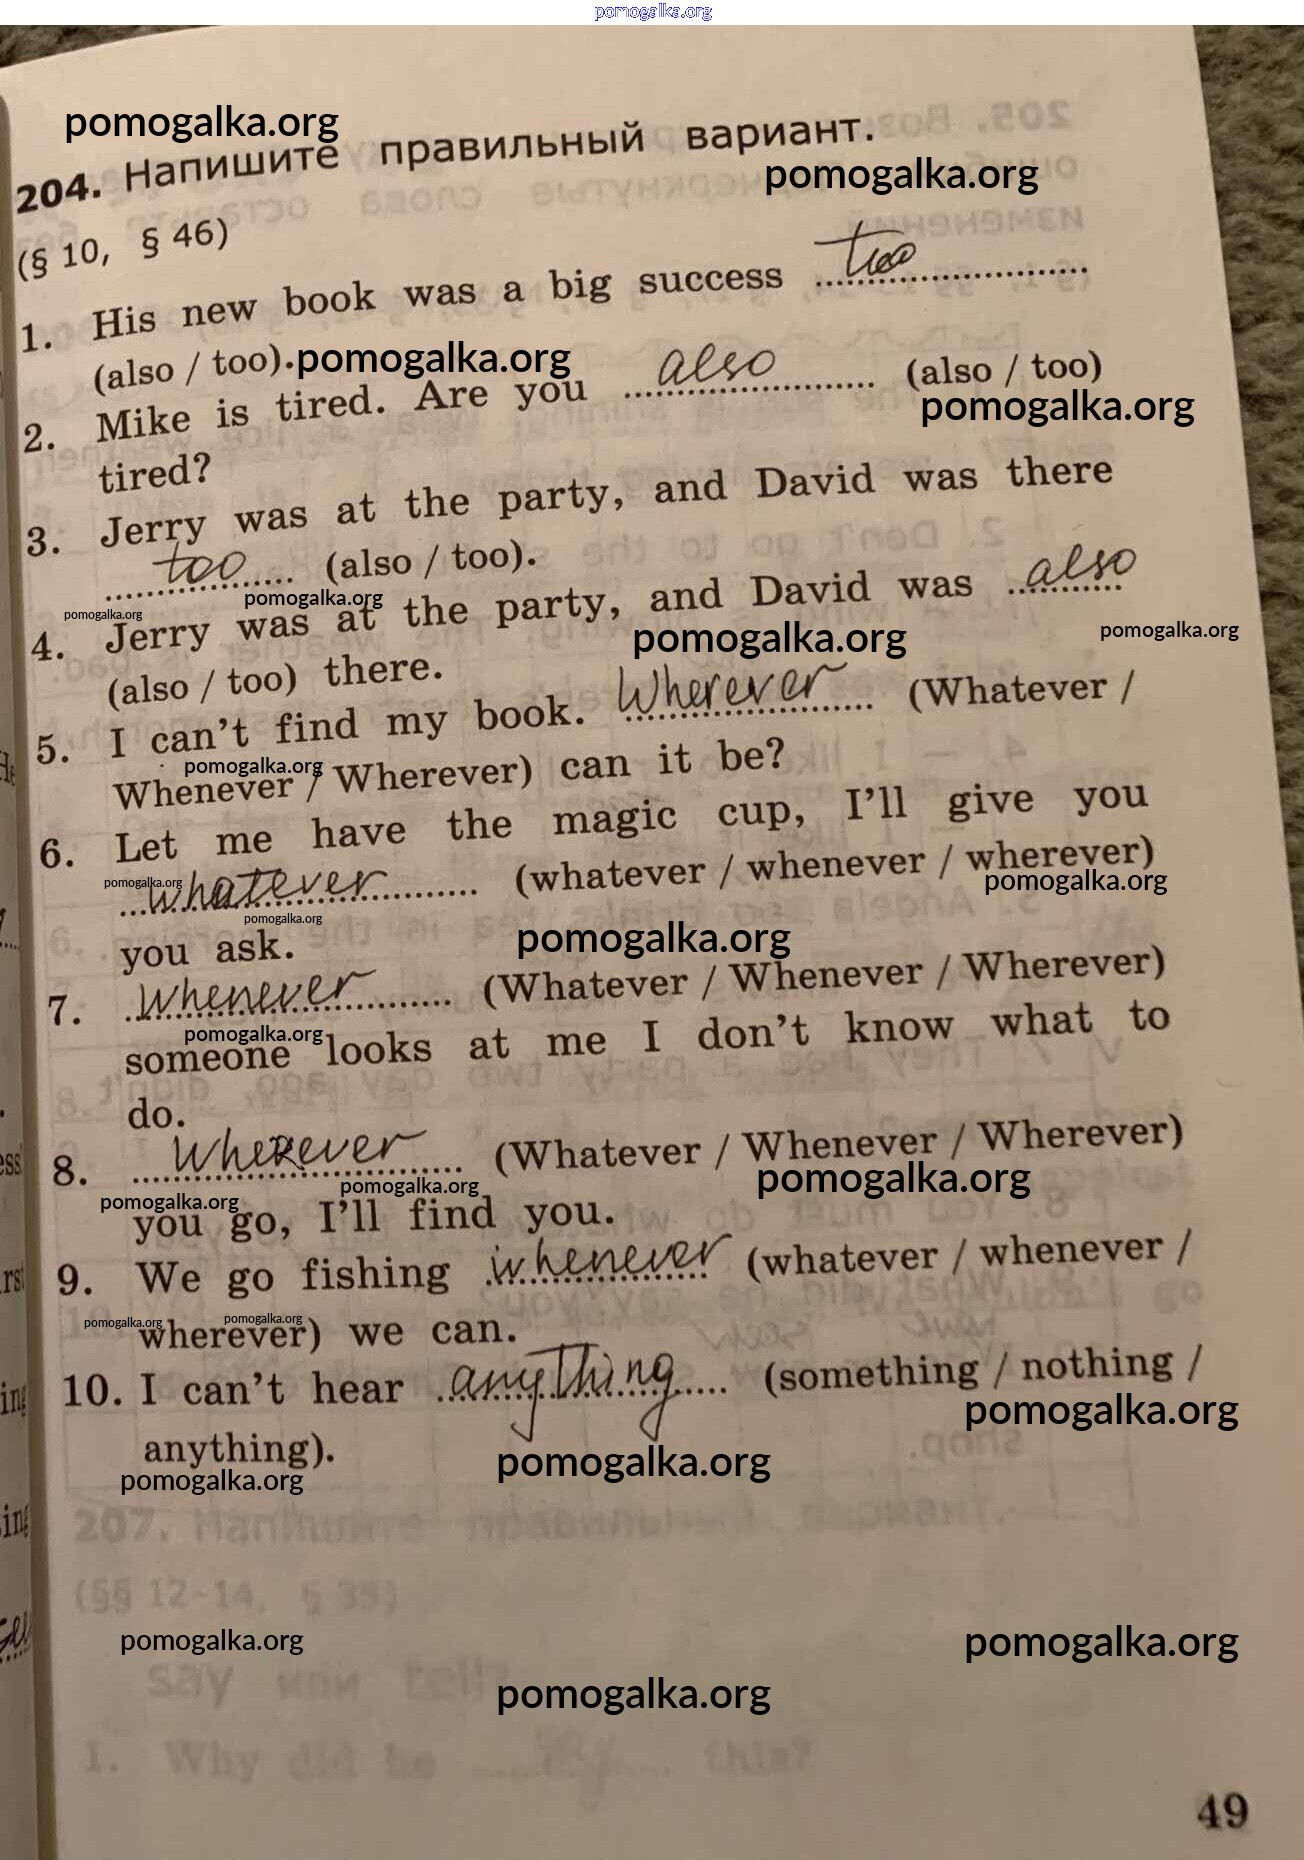 pomogalka.org
pomogalka.org
204. Напишите правильный вариант.
pomogalka.org
(§ 10, § 46)
1. His new book was a big success too
(also / too).
pomogalka.org
2. Mike is tired. Are you also (also / too)
pomogalka.org
tired?
3. Jerry was at the party, and David was there
too (also / too).
pomogalka.org
pomogalka.org
4. Jerry was at the party, and David was also
pomogalka.org
pomogalka.org
(also / too) there.
5. I can't find my book. Wherever (Whatever /
pomogalka.org
Whenever / Wherever) can it be?
6. Let me have the magic cup, I'll give you
whatever (whatever / whenever / wherever)
pomogalka.org
pomogalka.org
pomogalka.org
you ask.
pomogalka.org
7. Whenever (Whatever / Whenever / Wherever)
pomogalka.org
someone looks at me I don't know what to
do.
8. Wherever (Whatever / Whenever / Wherever)
pomogalka.org
pomogalka.org
pomogalka.org
you go, I'll find you.
9. We go fishing whenever (whatever / whenever /
pomogalka.org
pomogalka.org
wherever) we can.
10. I can't hear anything (something / nothing /
pomogalka.org
anything).
pomogalka.org
pomogalka.org
207. Напишите правильный вариант.
(§§ 12-14, § 35)
pomogalka.org
pomogalka.org
say или tell?
pomogalka.org
1. Why did he this?
49